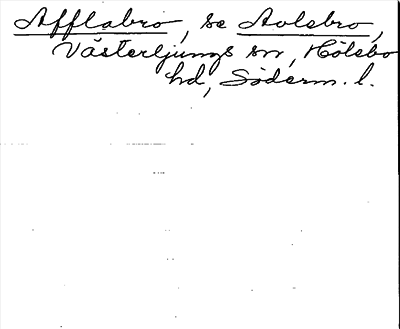 Afflabro, se Avlsbro,
Västerljungs sn, Hölebo
hd, Söderm. l.